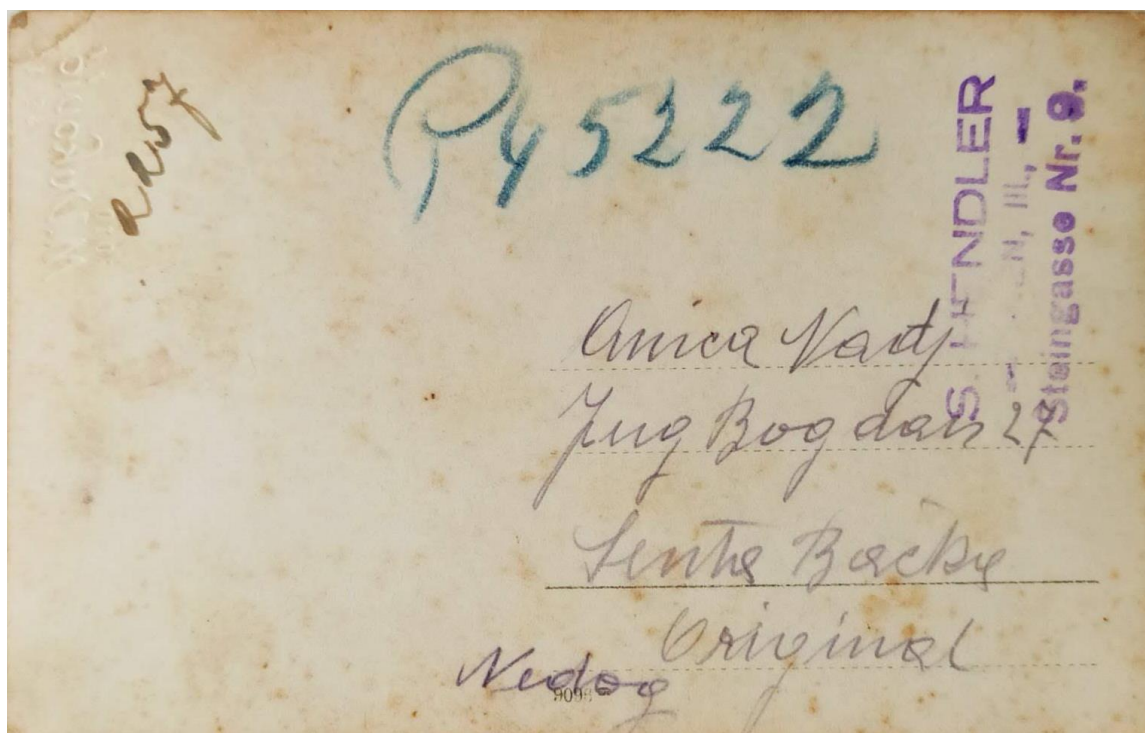 P45222
S. HENDLER
III., —
Steingasse Nr. 9.
Anica Nadj
Jug Bogdan 27
Senta Bačka
Original
9096